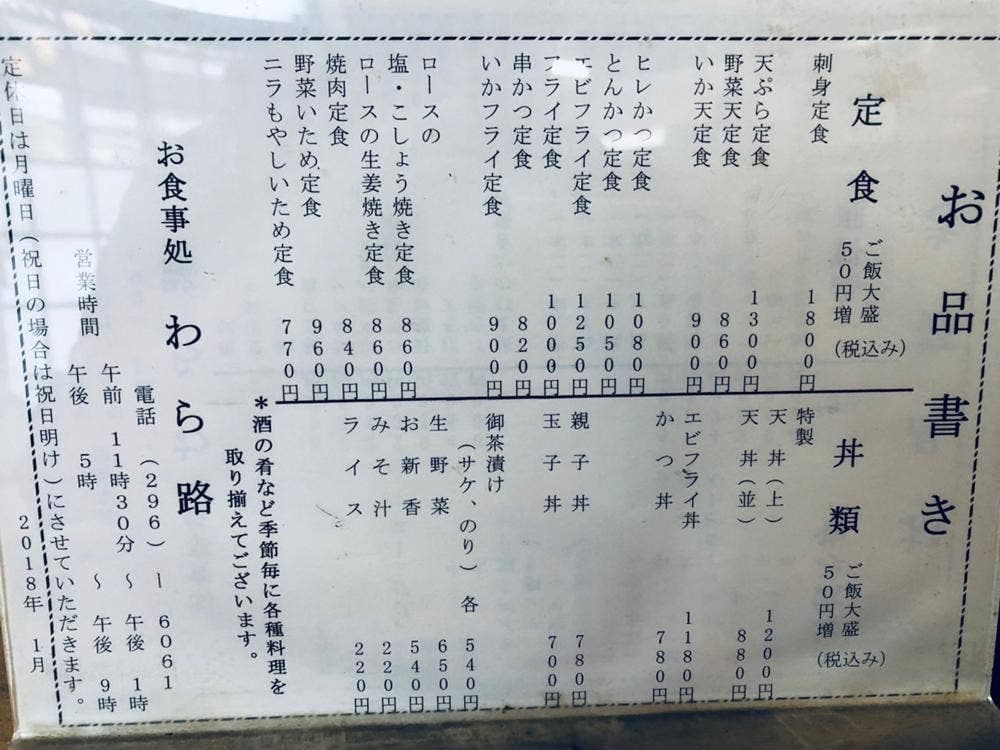 お品書き
定食
ご飯大盛
50円増
(税込み)
刺身定食 1800円
天ぷら定食 1300円
野菜天定食 860円
いか天定食 900円
ヒレかつ定食 1080円
とんかつ定食 1050円
エビフライ定食 1250円
フライ定食 1000円
串かつ定食 820円
いかフライ定食 900円
ロースの
塩・こしょう焼き定食 860円
ロースの生姜焼き定食 860円
焼肉定食 840円
野菜いため定食 960円
ニラもやしいため定食 770円
丼類
ご飯大盛
50円増
(税込み)
特製
天丼(上) 1200円
天丼(並) 880円
エビフライ丼 1180円
かつ丼 780円
親子丼 780円
玉子丼 700円
御茶漬け
(サケ、のり) 各 540円
生野菜 650円
お新香 540円
みそ汁 220円
ライス 220円
*酒の肴など季節毎に各種料理を
取り揃えてございます。
お食事処 わら路
電話 (296) ー 6061
営業時間
午前 11時30分 〜 午後 1時
午後 5時 〜 午後 9時
定休日は月曜日(祝日の場合は祝日明け)にさせていただきます。
2018年 1月